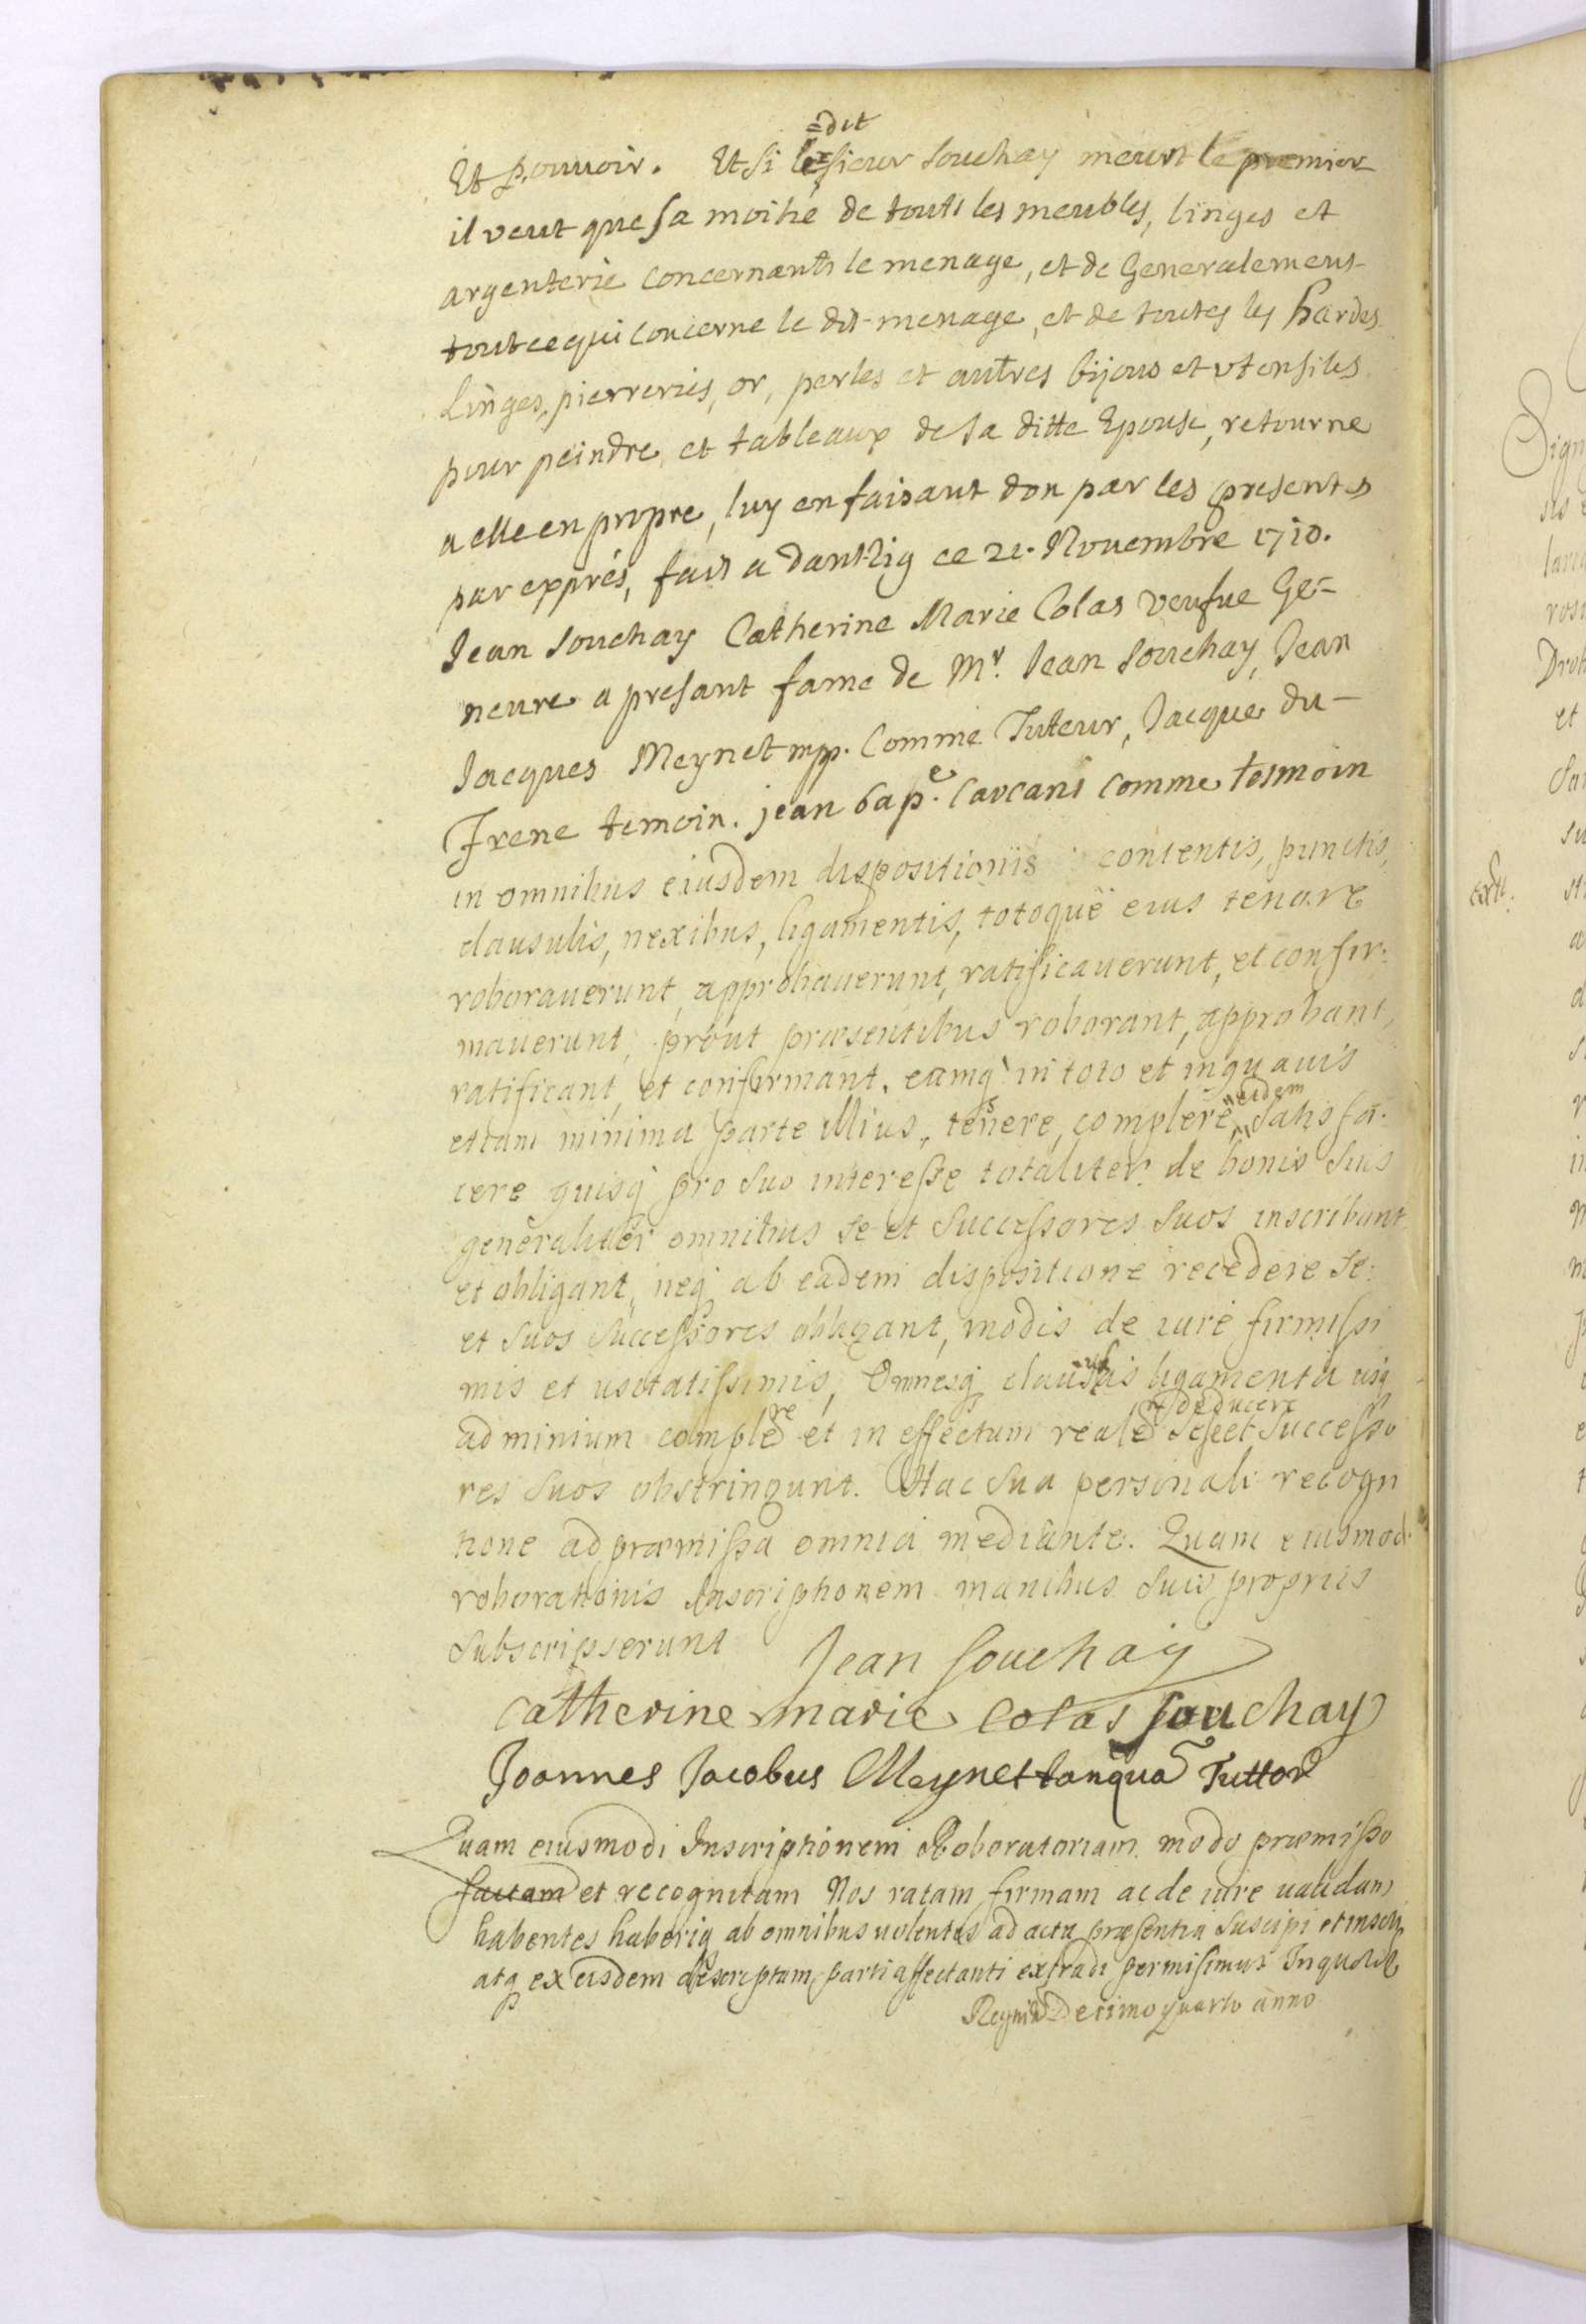 Et pouuoir. Et si le =dit sieur Souchay meurt le premier
il veut que sa moitié de touts les meubles, linges et
argenterie concernants le menage, et de Generalement
tout ce qui concerne le dit menage, et de toutes les hardes
Linges, pierreries, or, perles et autres bijous et vtensiles
pour peindre, et tableaux de sa ditte Epouse, retourne
a elle en propre, luy en faisant don par les presentes
par exprés, fait a dantzig ce 21. Nouembre 1710.
Jean Souchay Catherine Marie Colas veufue Ge=
neure a presant fame de Mr. Jean Souchay, Jean
Jacques Meynet mpp. Comme Tuteur, Jacque du-
Frene temoin. jean bape. Carcani comme tesmoin
in omnibus eiusdem dispositionis contentis, punctis,
clausulis, nexibus, ligamentis, totoque eius tenore
roborauerunt, approbauerunt, ratificauerunt, et confir:
mauerunt, prout præsentibus roborant, approbant,
ratificant, et confirmant. eamq in toto et in quauis
etiam minima parte illius, tenere, complere, eidem satisfa:
cere quisq pro suo interesse totaliter de bonis suis
generaliter omnibus se et Successores suos inscribunt
et obligant, neq ab eadem dispositione recedere se:
et suos successores obligant, modis de iure firmissi
mis et usitatissimis, Omnesq clausulas ligamenta usq
ad minium complere et in effectum reale deducere sese et Successo
res suos obstringunt. Hac sua personali recogni
tione ad præmissa omnia mediante. Quam eiusmodi
roborationis Inscriptionem manibus suis propriis
subscripserunt Jean Souchay
catherine marie colas souchay
Joannes Jacobus Meynet tanqua Tuttor
Quam eiusmodi Inscriptionem Roboratoriam modo præmisso
factam et recognitam Nos ratam firmam ac de iure ualidam
habentes haberiq ab omnibus uolentes ad acta præsentia suscipi et inscribi
atq ex eisdem descriptam parti affectanti extradi permisimus
Regni Decimo quarto anno